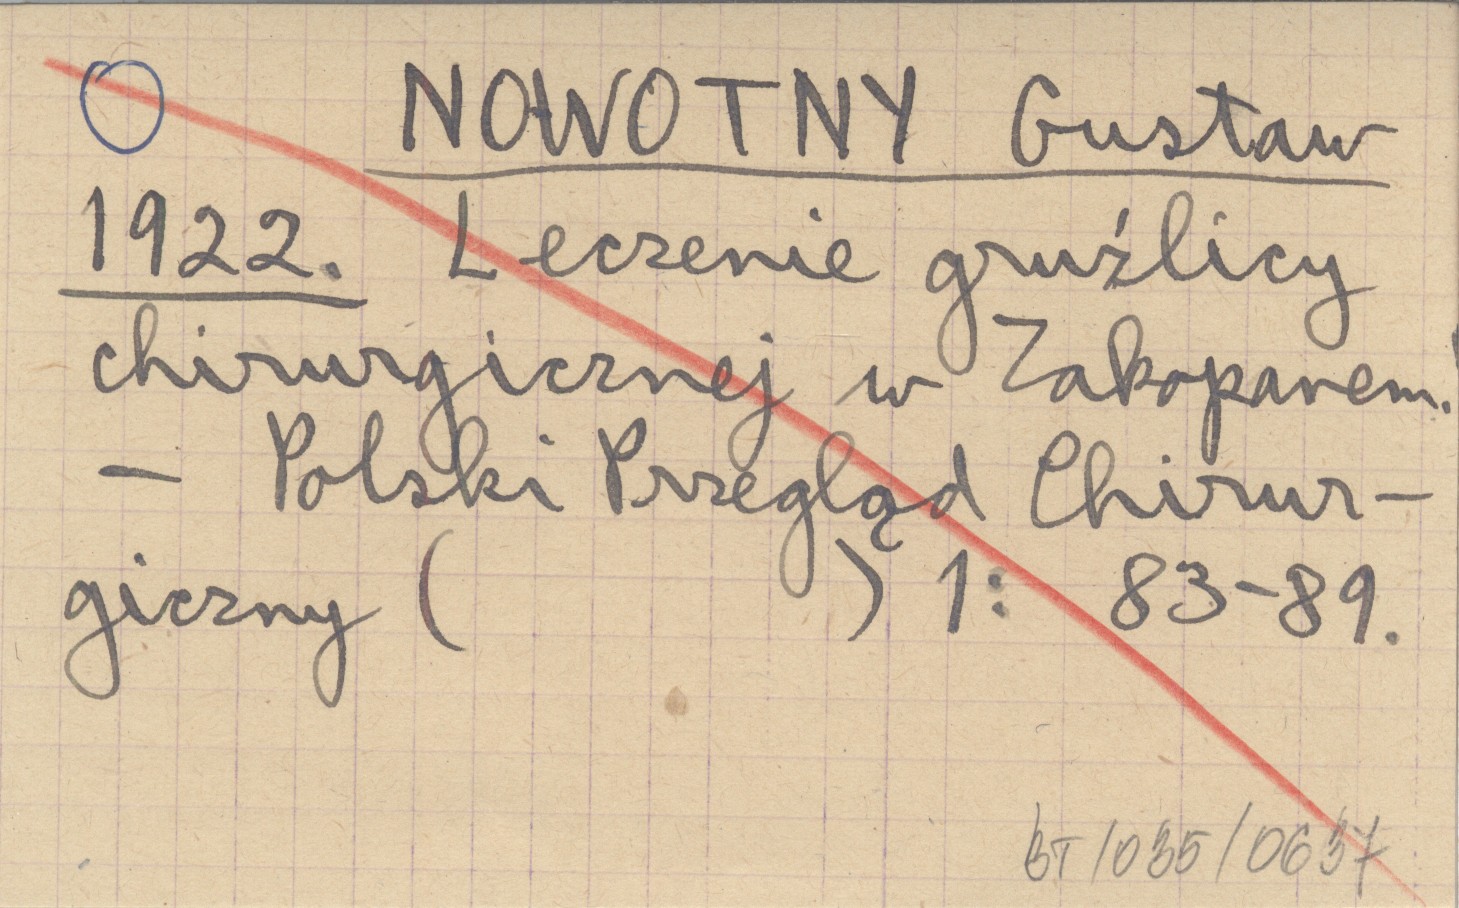 NOWOTNY Gustaw
1922. Leczenie gruźlicy
chirurgicznej w Zakopanem.
- Polski Przegląd Chirur-
giczny ( ) 1: 83-89.
BT/035/0637